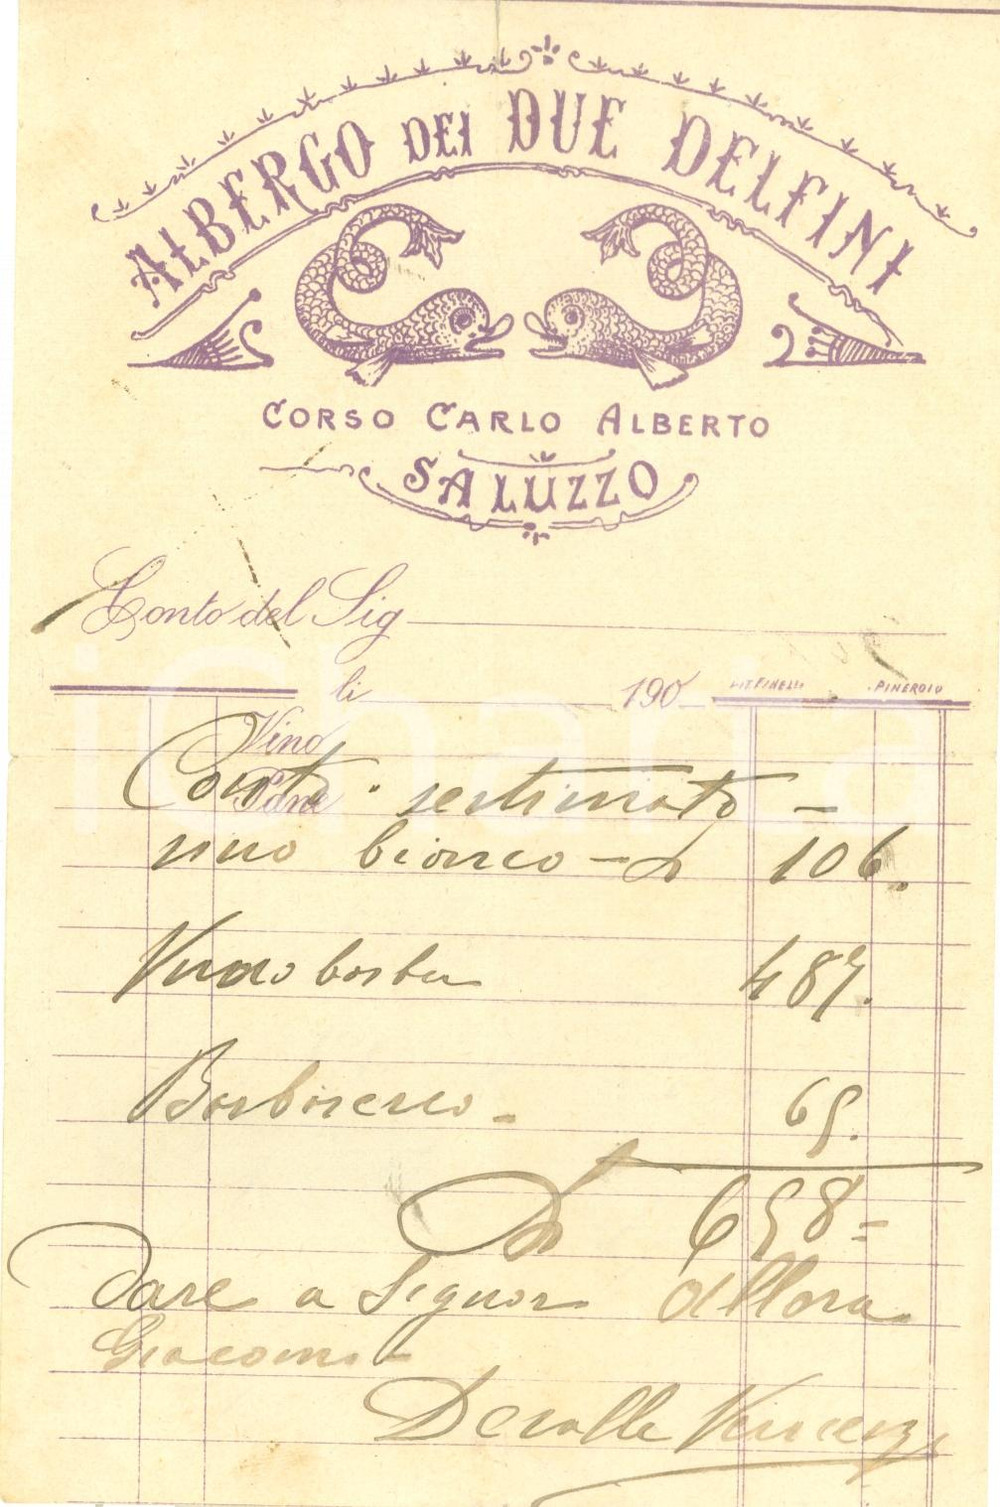 ALBERGO DEI DUE DELFINI
CORSO CARLO ALBERTO
SALUZZO
Conto del Sig
li 190
PINEROLO
Vino
Pane
Conto
vino bianco 106.
Vino 487.
65.
658 =
Dare a Signor Allora
Giacomo
Deralle Vincenzo